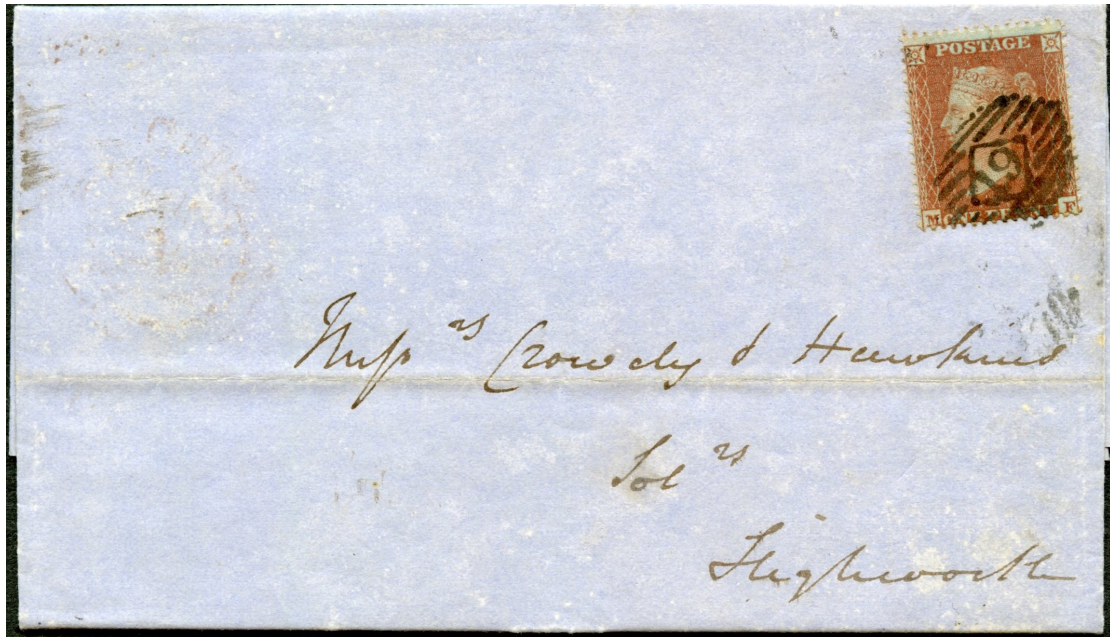 POSTAGE
49
M ONE PENNY F
Mess rs Crowdy & Hawkins
Sol rs
Highworth